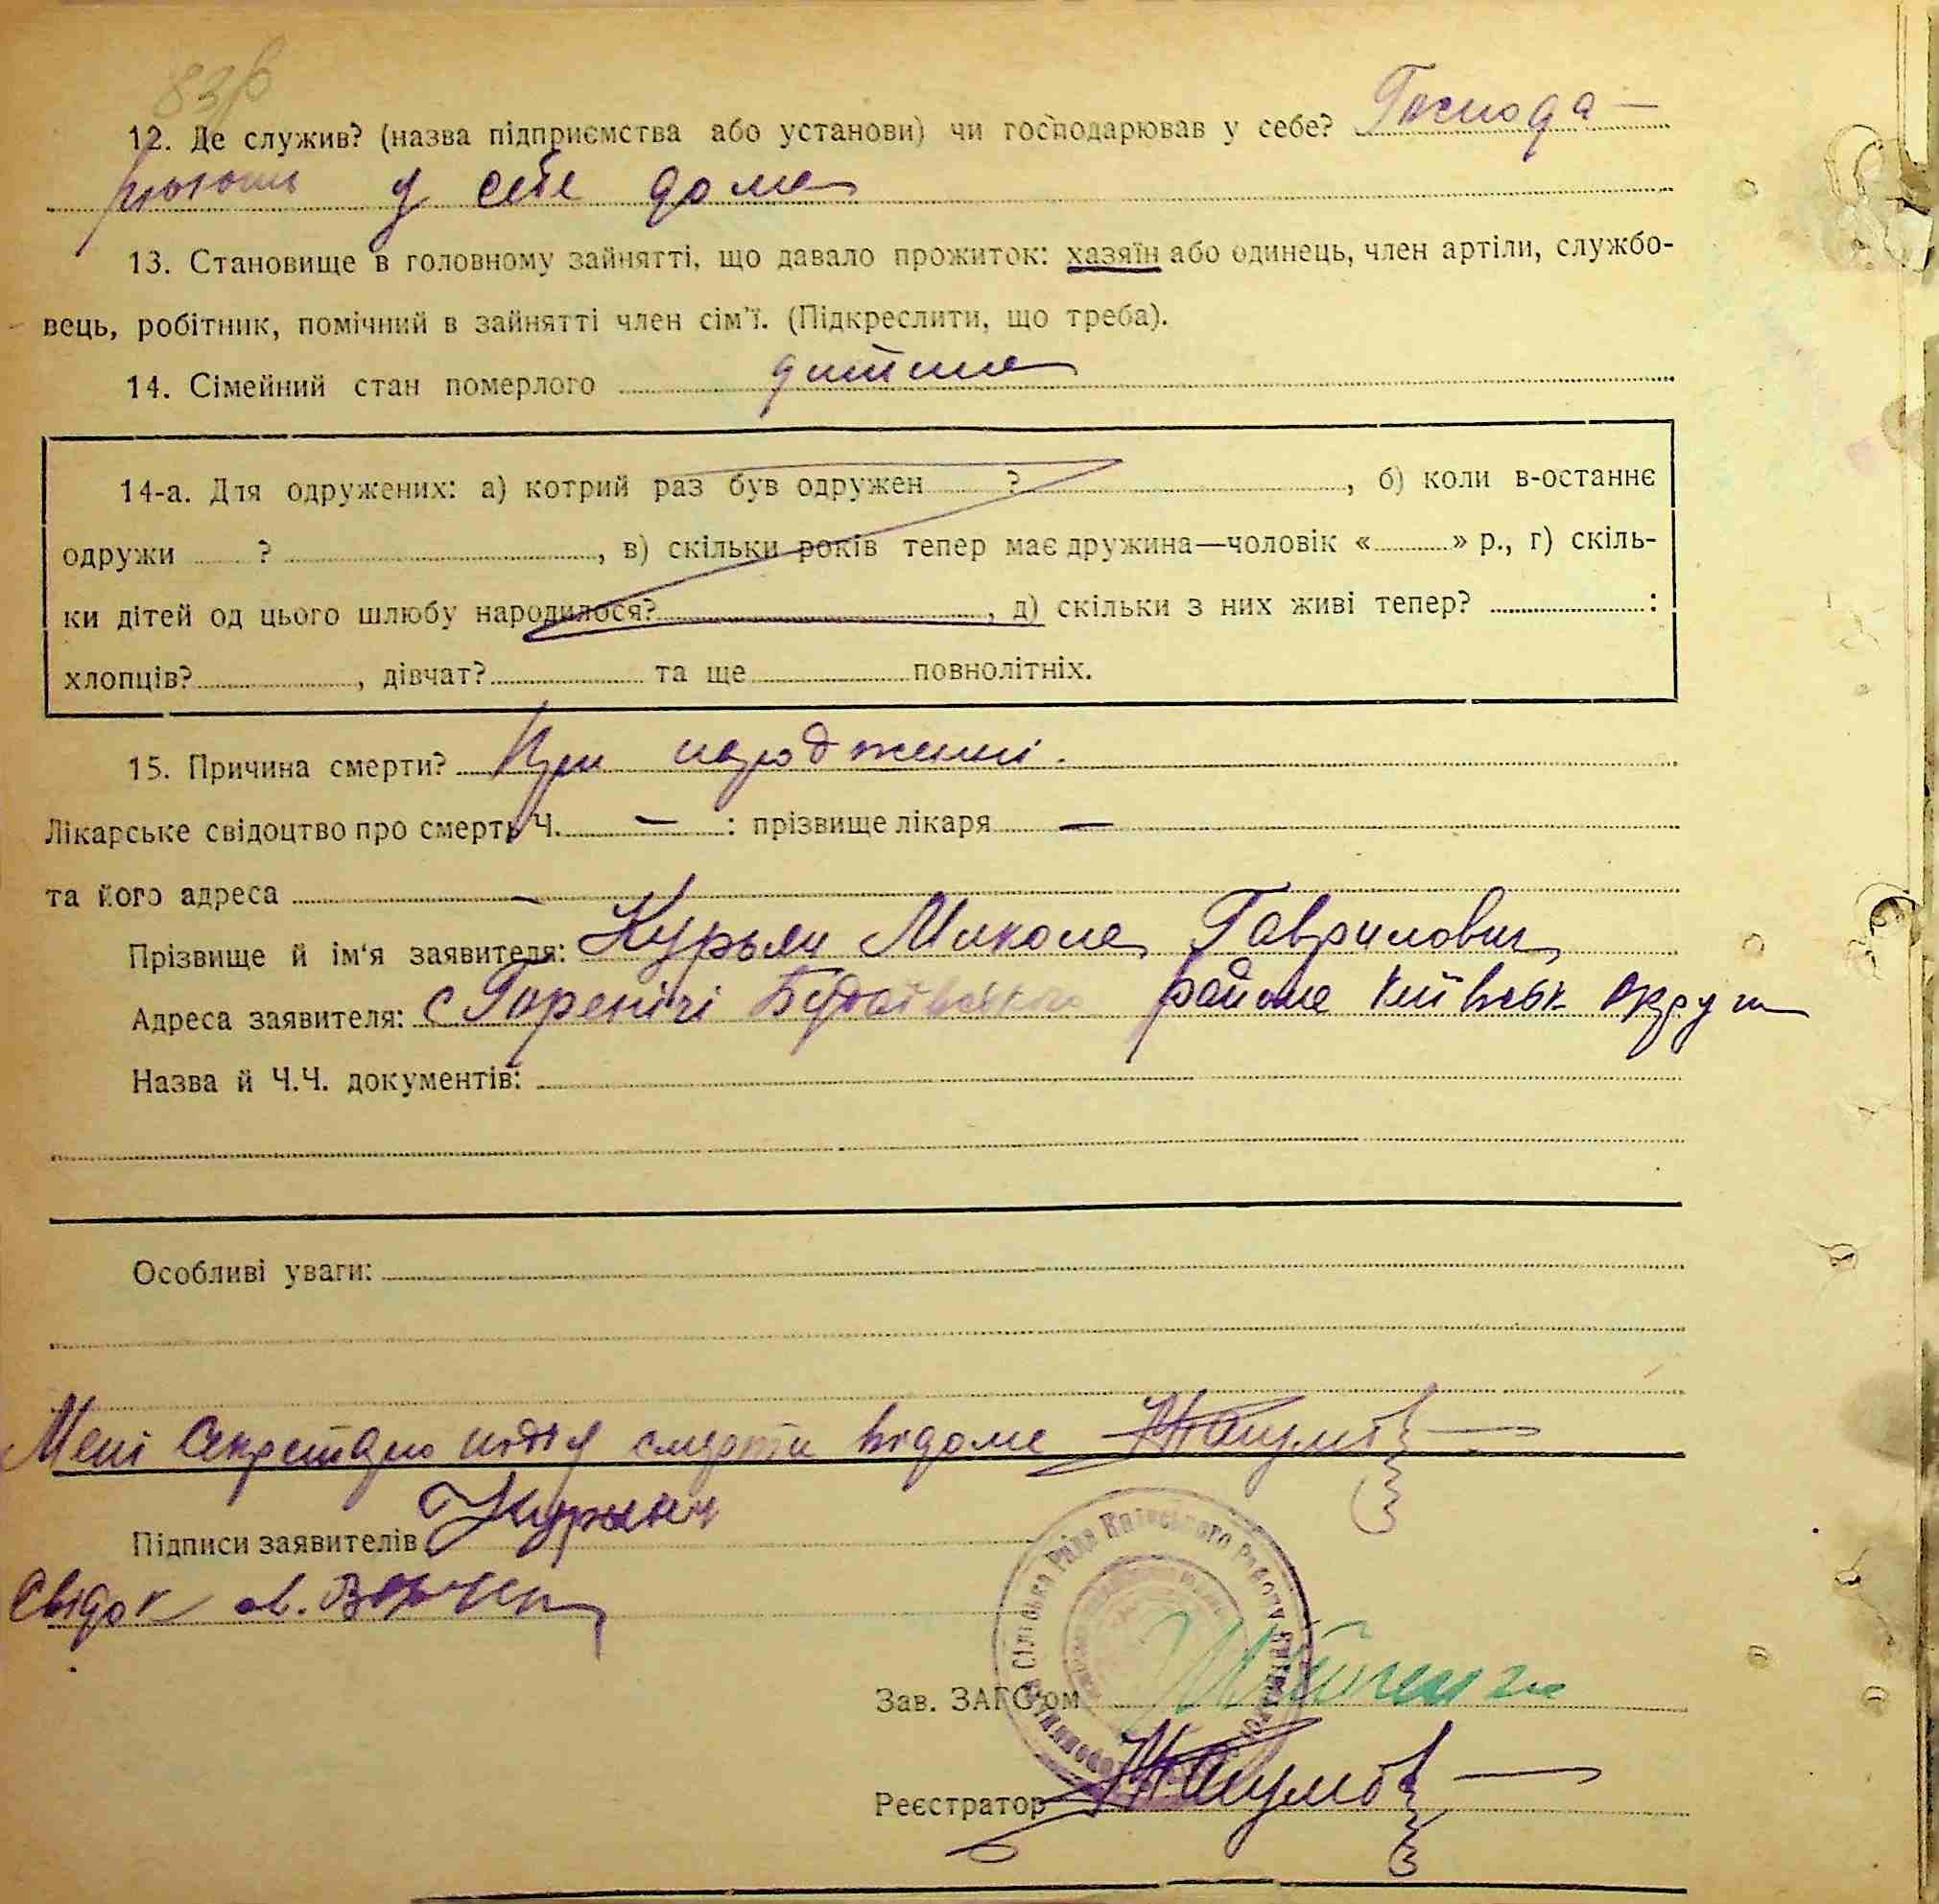 83
12. Де служив? (назва підприємства або установи) чи господарював у себе? Господа-
рюють у себе дома
13. Становище в головному зайнятті, що давало прожиток: хазяїн або одинець, член артіли, службо-
вець, робітник, помічний в зайнятті член сім'ї. (Підкреслити, що треба).
14. Сімейний стан померлого дитина
14-а. Для одружених: а) котрий раз був одружен ? , б) коли в-останнє
одружи ? , в) скільки років тепер має дружина—чоловік « » р., г) скіль-
ки дітей од цього шлюбу народилося? , д) скільки з них живі тепер? :
хлопців? , дівчат? та ще повнолітніх.
15. Причина смерти? При народженні.
Лікарське свідоцтво про смерть Ч. — : прізвище лікаря —
та його адреса —
Прізвище й ім'я заявителя: Курьян Микола Гаврилович
Адреса заявителя: с Горенічі Будаївського района Київськ округи
Назва й Ч.Ч. документів:
Особливі уваги:
Мені Секретарю подія смерти відома
Підписи заявителів Курьян
Свідок
Сільська Рада Київського Району
Зав. ЗАГС'ом
Реєстратор